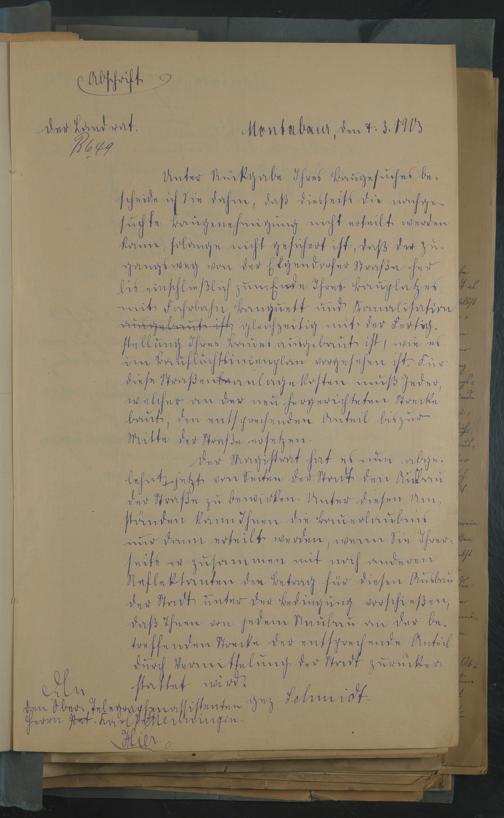 Abschrift.
Der Landrat.
Montabaur, den 7. 3. 1913
R 649
Unter Rückgabe Ihres Baugesuches be-
scheide ich Sie dahin, daß diesseits die nachge-
suchte Baugenehmigung nicht erteilt werden
kann, solange nicht gesichert ist, daß der Zu-
gangsweg von der Elgendorfer Straße her
bis einschließlich zum Ende Ihres Bauplatzes
mit Fahrbahn, Banquett und Kanalisation
ausgebaut ist, gleichzeitig mit der Fertig-
stellung Ihres Baues ausgebaut ist, wie es
im Baufluchtlinienplan vorgesehen ist. Für
diese Straßenanlagekosten muß Jeder,
welcher an der neu hergerichteten Strecke
baut, den entsprechenden Anteil bis zur
Mitte der Straße ersetzen.
Der Magistrat hat es nun abge-
lehnt, jetzt von Seiten der Stadt den Ausbau
der Straße zu bewirken. Unter diesen Um-
ständen kann Ihnen die Bauerlaubnis
nur dann erteilt werden, wenn Sie Ihrer-
seits zusammen mit noch anderen
Reflektanten den Betrag für diesen Ausbau
der Stadt unter der Bedingung vorschießen,
daß Ihnen von jedem Neubau an der be-
treffenden Strecke der entsprechende Anteil
durch Vermittelung der Stadt zurücker-
stattet wird.
gez. Schmidt.
An
den Ober-Telegraphenassistenten
Herrn Karl
Hier.